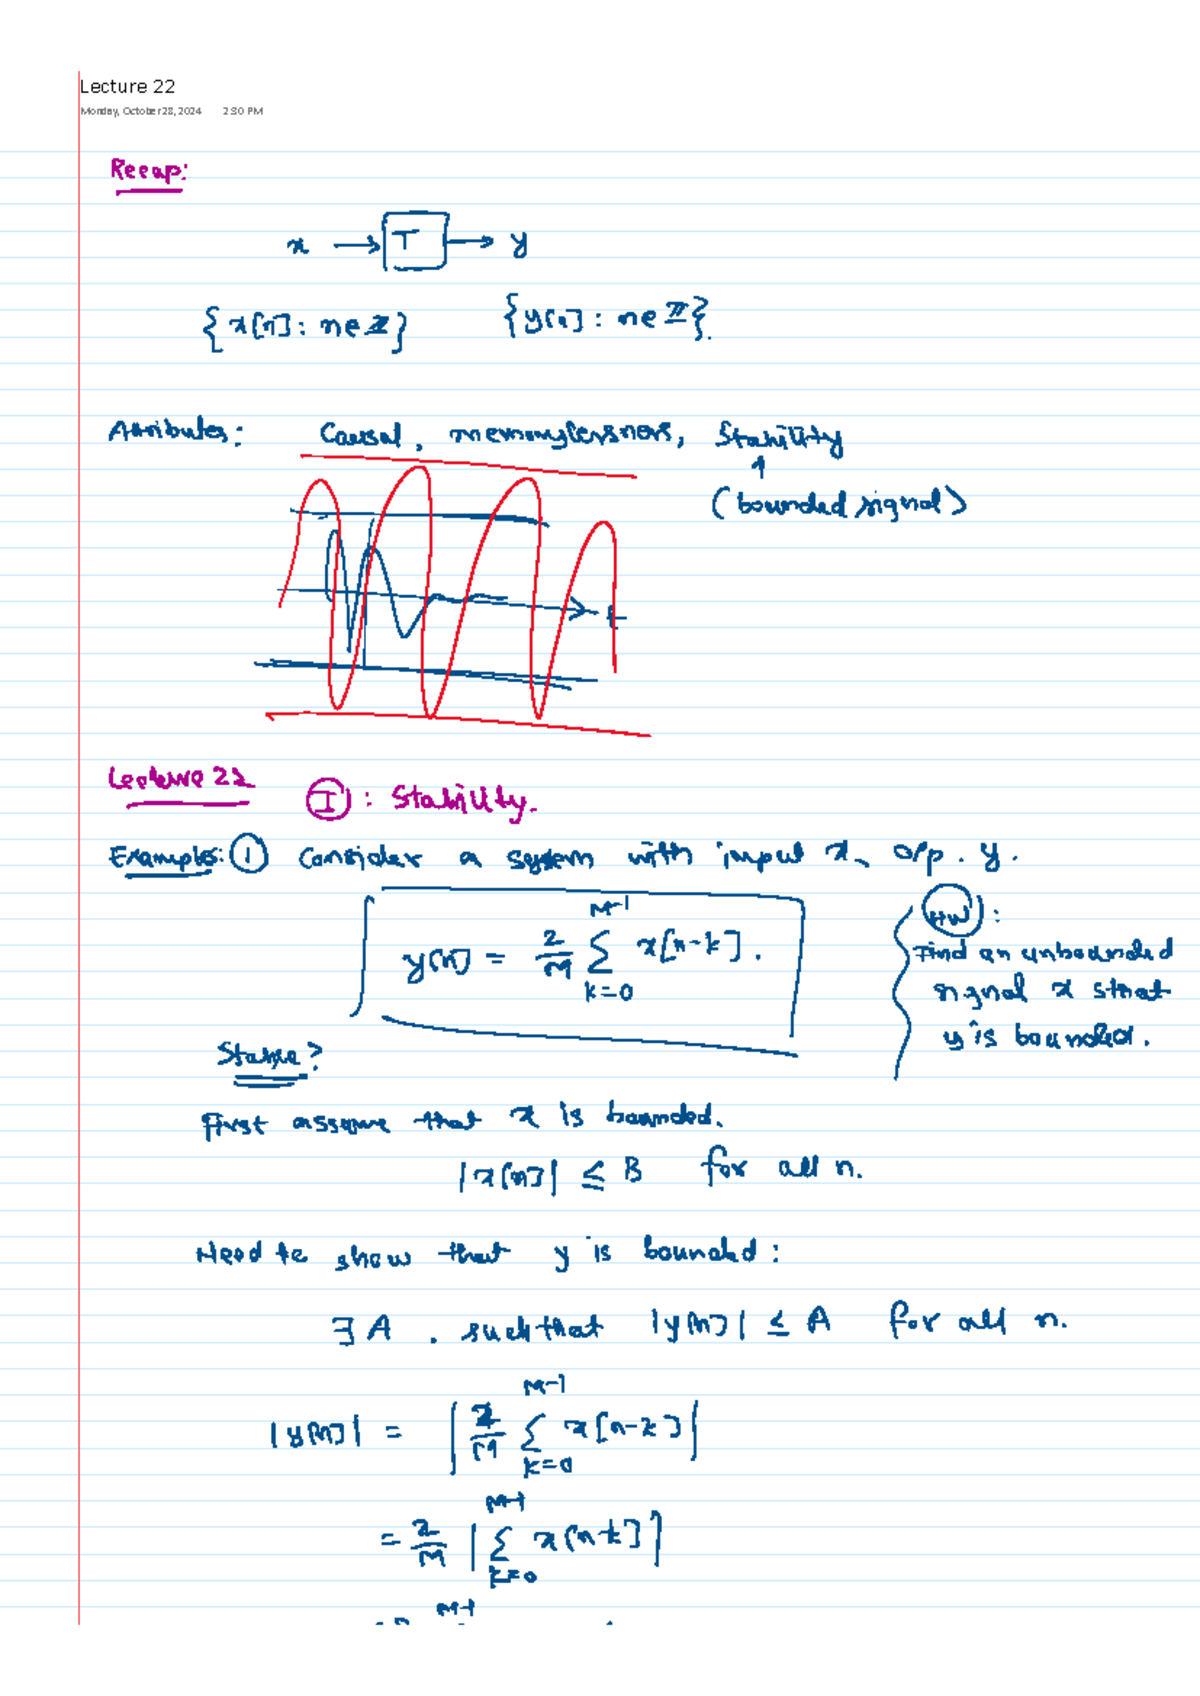 Lecture 22
Monday, October 28, 2024 2:30 PM
Recap:
x → T → y
{x[n] : n∈ℤ} {y[n] : n∈ℤ}.
Attributes: Causal, memorylessness, Stability
↑
(bounded signal)
t
Lecture 22
I : Stability.
Examples: ① Consider a system with input x, o/p. y.
y[n] = 2/M ∑_{k=0}^{M-1} x[n-k].
HW :
Find an unbounded
signal x s that
y is bounded.
Stable?
First assume that x is bounded.
|x[n]| ≤ B for all n.
Need to show that y is bounded :
∃ A . such that |y[n]| ≤ A for all n.
|y[n]| = | 2/M ∑_{k=0}^{M-1} x[n-k] |
= 2/M | ∑_{k=0}^{M-1} x[n-k] |
M-1